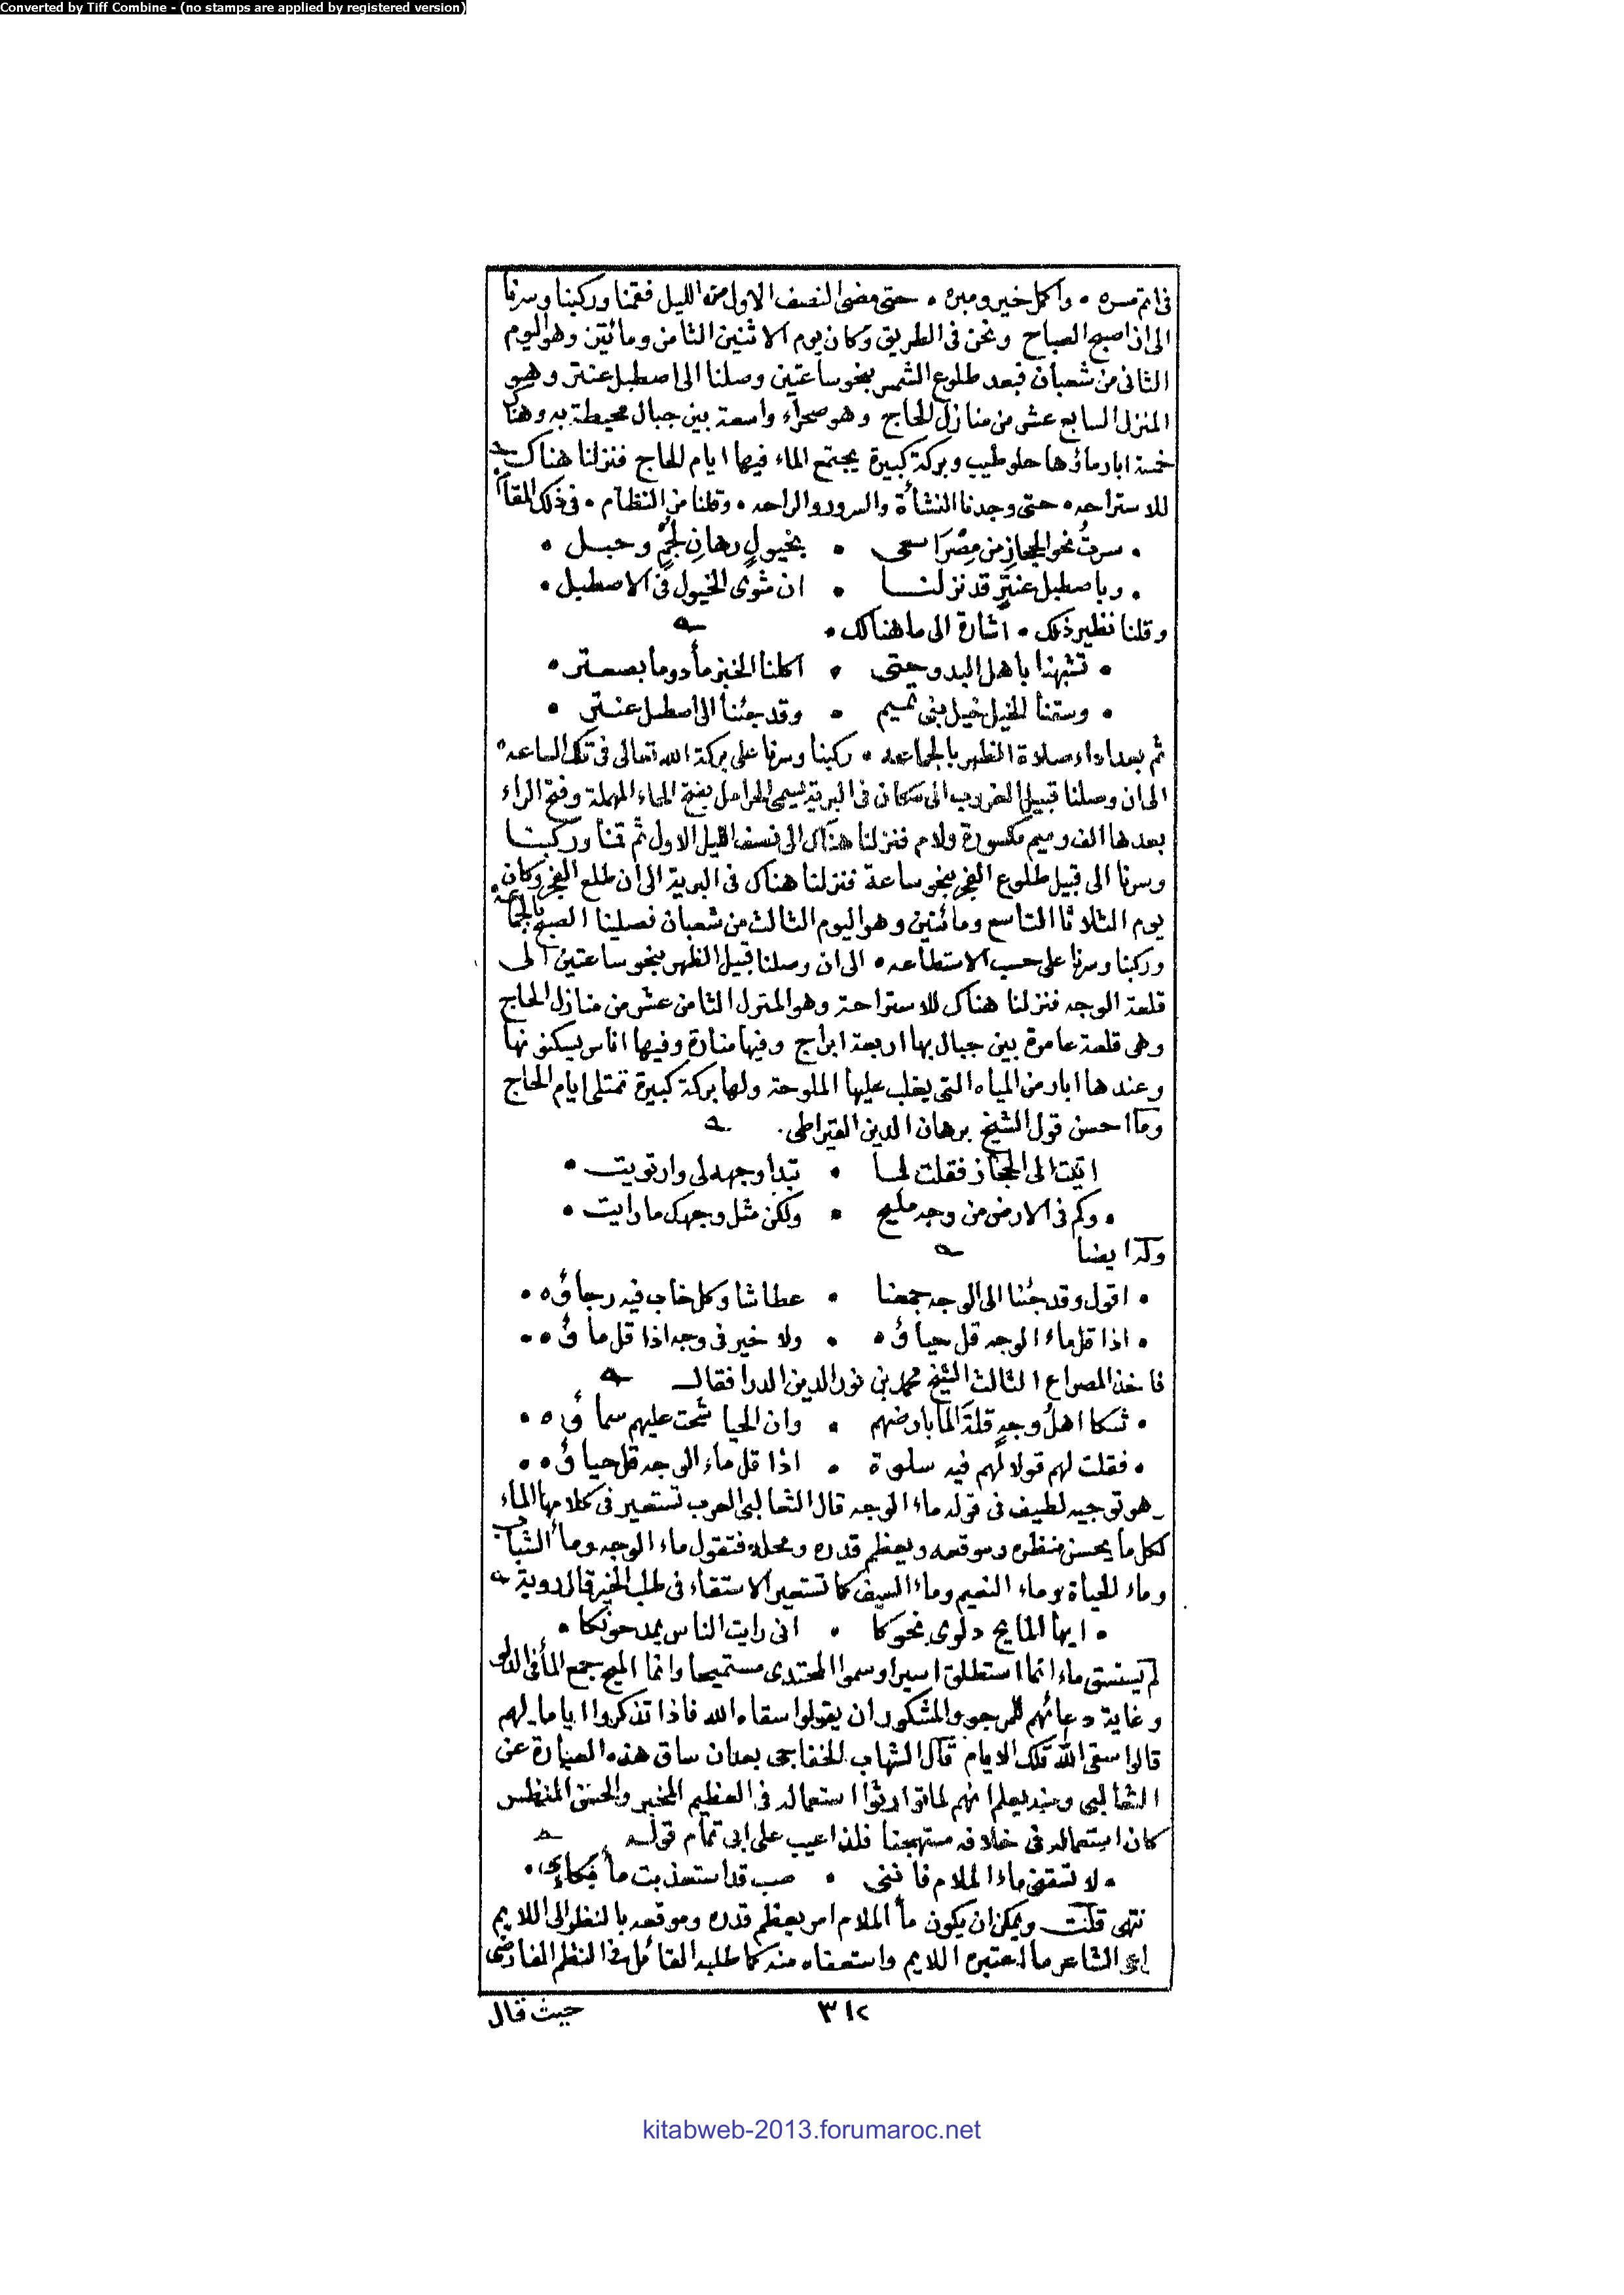 Converted by Tiff Combine - (no stamps are applied by registered version)
فى اتم مسره • واكمل خير ومبره • حتى مضى النصف الاول من الليل فقمنا وركبنا وسرنا
الى ان اصبح الصباح ونحن فى الطريق وكان يوم الاثنين الثامن ومائتين وهو اليوم
الثانى من شعبان فبعد طلوع الشمس بنحو ساعتين وصلنا الى اصطبل عنتر وهو
المنزل السابع عشر من منازل الحاج وهو صحراء واسعة بين جبال محيطة به وهناك
خمسة ابار ماؤها حلو طيب وبركة كبيرة يجتمع الماء فيها ايام الحاج فنزلنا هناك
للاستراحه • حتى وجدنا النشأة والسرور والراحه • وقلنا من النظام • فى ذلك المقام
• سرت نحو الحجاز من مصر اسعى • بخيول رهان لجم وحبل •
• وباصطبل عنتر قد نزلنا • ان مثوى الخيول فى الاصطبل •
وقلنا نظير ذلك • اشارة الى ما هنالك •
• تشبهنا باهل البدو حتى • اكلنا الخبز مأدوما بصعتر •
• وسقنا الخيل خيل بنى تميم • وقد جئنا الى اسطبل عنتر •
ثم بعد اداء صلاة الظهر بالجماعه • ركبنا وسرنا على بركة الله تعالى فى تلك الساعه •
الى ان وصلنا قبيل الغروب الى مكان فى البرية يسمى الحرامل بفتح الحاء المهملة وفتح الراء
بعدها الف وميم مكسورة ولام فنزلنا هناك الى نصف الليل الاول ثم قمنا وركبنا
وسرنا الى قبيل طلوع الفجر بنحو ساعة فنزلنا هناك فى البرية الى ان طلع الفجر وكان
يوم الثلاثا التاسع ومائتين وهو اليوم الثالث من شعبان فصلينا الصبح بالجماعة
وركبنا وسرنا على حسب الاستطاعه • الى ان وصلنا قبيل الظهر بنحو ساعتين الى
قلعة الوجه فنزلنا هناك للاستراحة وهو المنزل الثامن عشر من منازل الحاج
وهى قلعة عامرة بين جبال بها اربعة ابراج وفيها منارة وفيها اناس يسكنونها
وعندها ابار من المياه التى يغلب عليها الملوحة ولها بركة كبيرة تمتلى ايام الحاج
وما احسن قول الشيخ برهان الدين القيراطى.
اتيت الى الحجاز فقلت لما • تبدا وجهه لى وارتويت •
• وكم فى الارض من وجه مليح • ولكن مثل وجهك ما رايت •
وله ايضا
• اقول وقد جئنا الى الوجه جمعنا • عطاشا وكل خاب فيه رجاؤه •
• اذا قل ماء الوجه قل حياؤه • ولا خير فى وجه اذا قل ماؤه •
فاخذ المصراع الثالث الشيخ محمد بن نور الدين الدرا فقال
• شكا اهل وجه قلة الما بارضهم • وان الحيا شحت عليهم سماؤه •
• فقلت لهم قولا لهم فيه سلوة • اذا قل ماء الوجه قل حياؤه •
وهو توجيه لطيف فى قوله ماء الوجه قال الثعالبى العرب تستعير فى كلامها الماء
لكل ما يحسن منظره وموقعه ويعظم قدره ومحله فتقول ماء الوجه وماء الشباب
وماء الحياة وماء النعيم وماء السيف كما تستعير الاستقاء فى طلب الخير قال روبة
• ايها المايح دلوى نحوكا • انى رايت الناس يمدحونكا •
لم يستسق ماء انما استطلق اسيرا وسموا المجتدى مستميحا وانما الميح جمع الماء فى الدلو
وغاية دعائهم للمرجو والمشكور ان يقولوا سقاه الله فاذا تذكروا اياما لهم
قالوا سقى الله تلك الايام قال الشهاب الخفاجى بعد ان ساق هذه العبارة عن
الثعالبى ومنه يعلم انهم لما توارثوا استعماله فى العظيم المخبر والحسن المنظر
كان استعماله فى خلافه مستهجنا فلذا عيب على ابى تمام قوله
• لا تسقنى ماء الملام فاننى • صب قد استعذبت ماء بكاءى •
نتهى قلت ويمكن ان يكون ماء الملام امر يعظم قدره وموقعه بالنظر الى اللايم
الشاعر ما اعتبره اللايم واستعفاه منه كما طلبه القائل فى النظم الفارضى
٣١٢
حيث قال
kitabweb-2013.forumaroc.net